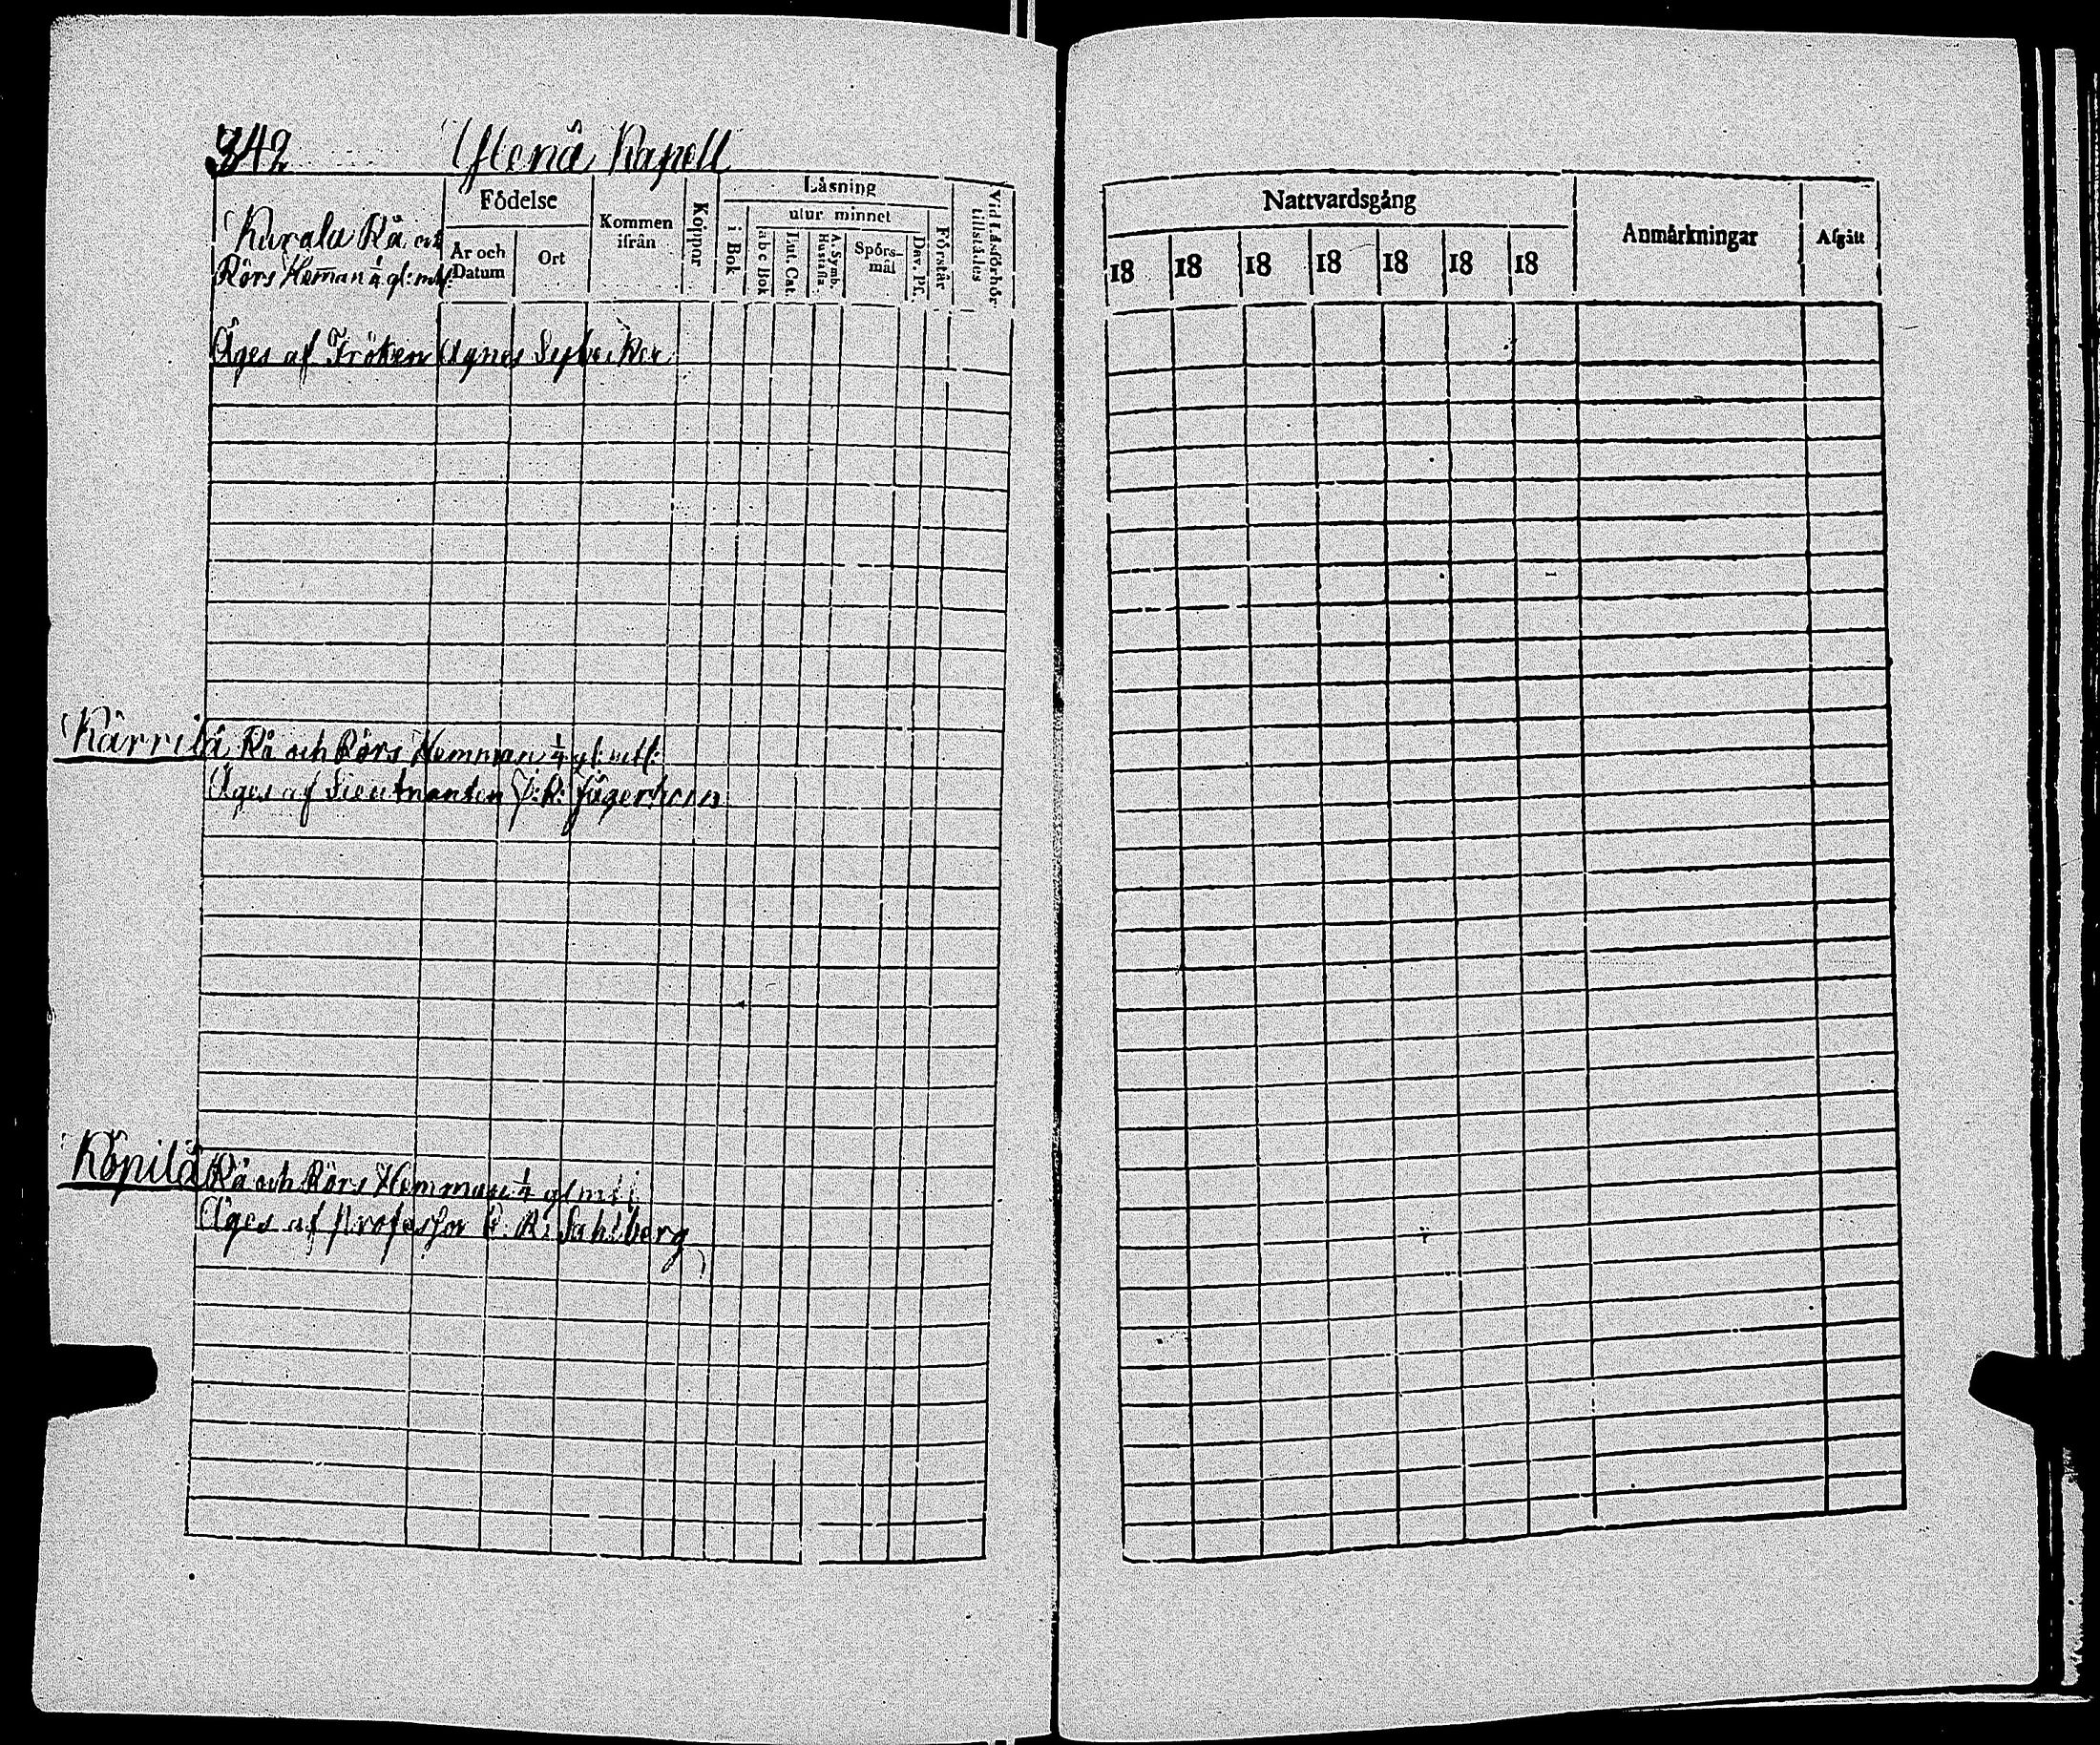 342 Yläne Kapell
Kurala Rå och
Rörs Heman ¼ gl: mtl:
Födelse
År och Datum
Ort
Kommen ifrån
Koppor
Läsning
i Bok
utur minnet
a b c Bok
Lut. Cat.
A. Symb. Hustafla.
Spörs-mål
Dav. Ps.
Förstår
Vid Läsförhör tillstädes
Nattvardsgång
18 18 18 18 18 18 18
Anmärkningar
Afgått
Äges af Fröken Agnes
Kärrilä Rå och Rörs Hemman ¼ gl: mtl:
Äges af Lieutnanten J: R: Jägerhorn
Köpilä Rå och Rörs Hemman ¼ gl mtl
Äges af Professor C. R: Sahlberg